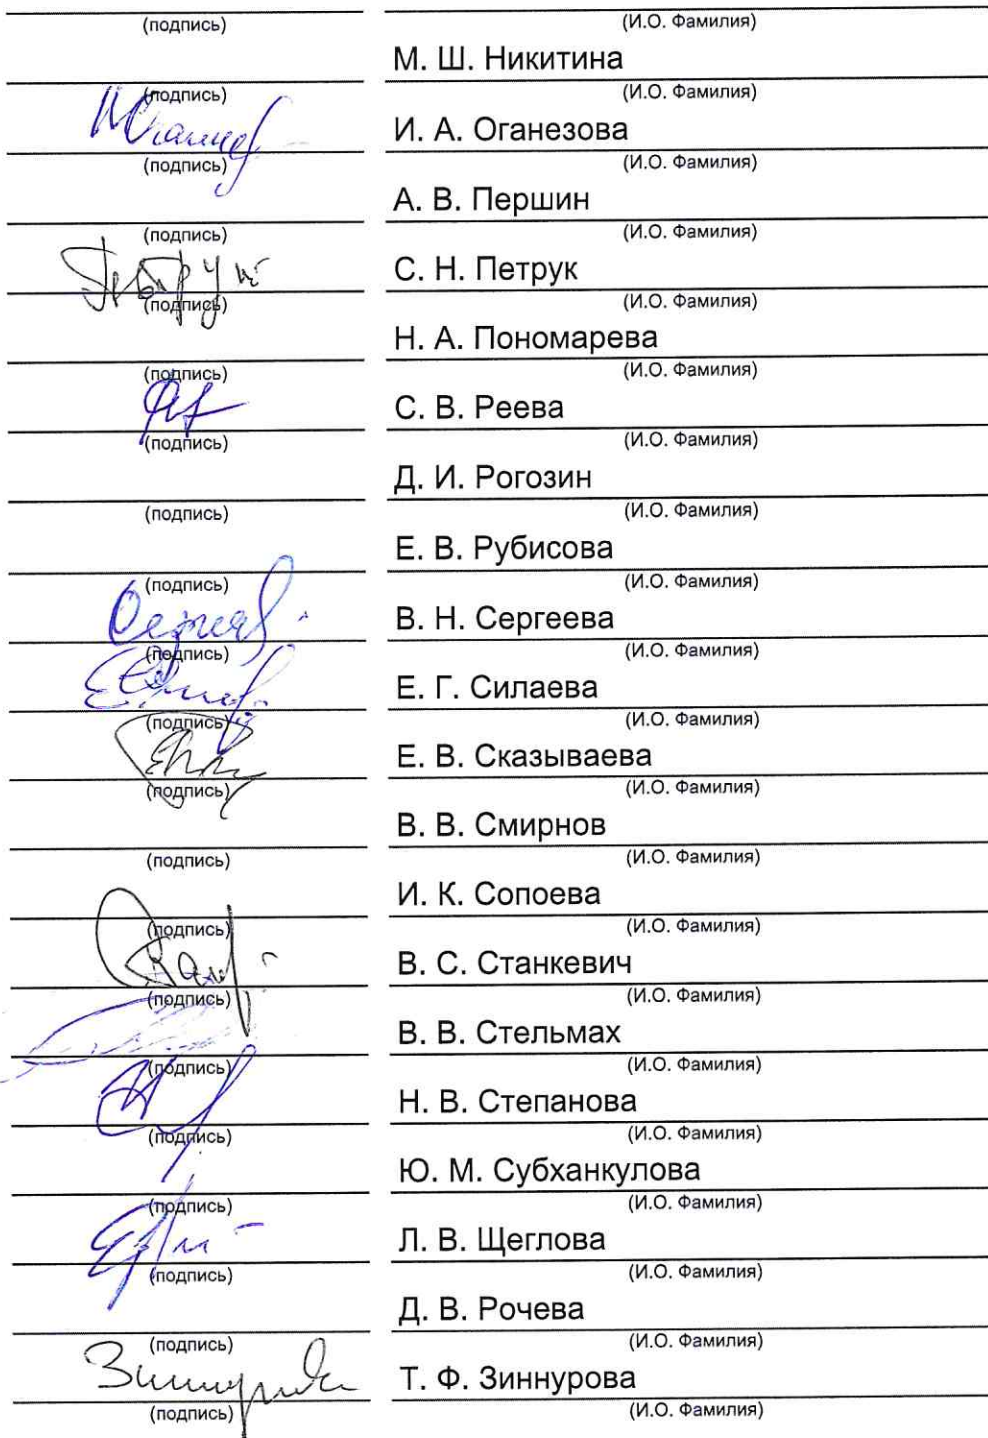 (подпись) (И.О. Фамилия)
М. Ш. Никитина
(подпись) (И.О. Фамилия)
И. А. Оганезова
(подпись) (И.О. Фамилия)
А. В. Першин
(подпись) (И.О. Фамилия)
Петрук С. Н. Петрук
(подпись) (И.О. Фамилия)
Н. А. Пономарева
(подпись) (И.О. Фамилия)
С. В. Реева
(подпись) (И.О. Фамилия)
Д. И. Рогозин
(подпись) (И.О. Фамилия)
Е. В. Рубисова
(подпись) (И.О. Фамилия)
В. Н. Сергеева
(подпись) (И.О. Фамилия)
Е. Г. Силаева
(подпись) (И.О. Фамилия)
Е. В. Сказываева
(подпись) (И.О. Фамилия)
В. В. Смирнов
(подпись) (И.О. Фамилия)
И. К. Сопоева
(подпись) (И.О. Фамилия)
В. С. Станкевич
(подпись) (И.О. Фамилия)
В. В. Стельмах
(подпись) (И.О. Фамилия)
Н. В. Степанова
(подпись) (И.О. Фамилия)
Ю. М. Субханкулова
(подпись) (И.О. Фамилия)
Л. В. Щеглова
(подпись) (И.О. Фамилия)
Д. В. Рочева
(подпись) (И.О. Фамилия)
Т. Ф. Зиннурова
(подпись) (И.О. Фамилия)